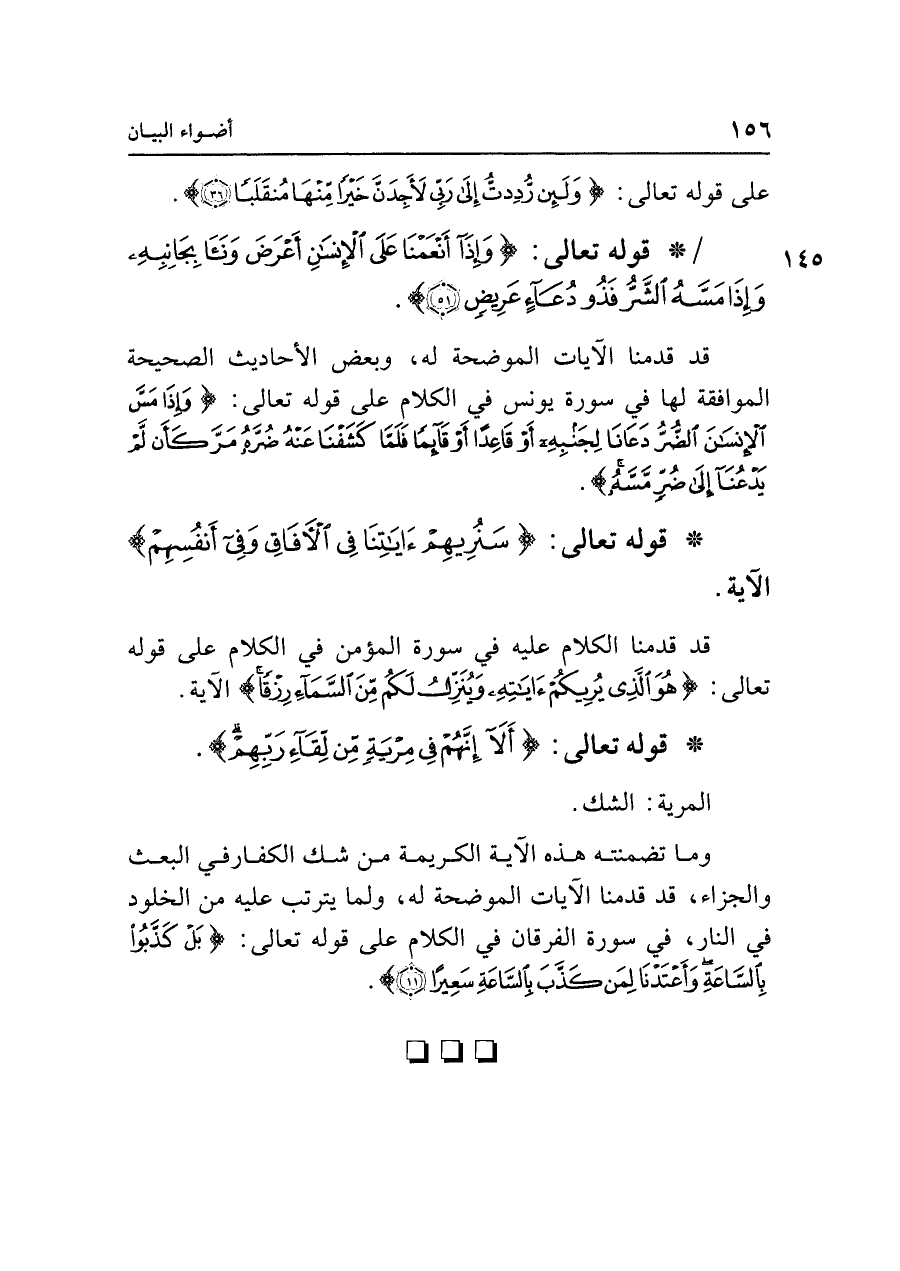 ١٥٦ أضـواء البيـان
على قوله تعالى: ﴿وَلَئِن رُّدِدتُّ إِلَىٰ رَبِّى لَأَجِدَنَّ خَيْرًا مِّنْهَا مُنقَلَبًا ٣٦﴾.
١٤٥ / * قوله تعالى: ﴿وَإِذَآ أَنْعَمْنَا عَلَى ٱلْإِنسَٰنِ أَعْرَضَ وَنَـَٔا بِجَانِبِهِۦ
وَإِذَا مَسَّهُ ٱلشَّرُّ فَذُو دُعَآءٍ عَرِيضٍ ٥١﴾.
قد قدمنا الآيات الموضحة له، وبعض الأحاديث الصحيحة
الموافقة لها في سورة يونس في الكلام على قوله تعالى: ﴿وَإِذَا مَسَّ
ٱلْإِنسَٰنَ ٱلضُّرُّ دَعَانَا لِجَنۢبِهِۦٓ أَوْ قَاعِدًا أَوْ قَآئِمًا فَلَمَّا كَشَفْنَا عَنْهُ ضُرَّهُۥ مَرَّ كَأَن لَّمْ
يَدْعُنَآ إِلَىٰ ضُرٍّ مَّسَّهُۥۚ﴾.
* قوله تعالى: ﴿سَنُرِيهِمْ ءَايَٰتِنَا فِى ٱلْءَافَاقِ وَفِىٓ أَنفُسِهِمْ﴾
الآية.
قد قدمنا الكلام عليه في سورة المؤمن في الكلام على قوله
تعالى: ﴿هُوَ ٱلَّذِى يُرِيكُمْ ءَايَٰتِهِۦ وَيُنَزِّلُ لَكُم مِّنَ ٱلسَّمَآءِ رِزْقًاۚ﴾ الآية.
* قوله تعالى: ﴿أَلَآ إِنَّهُمْ فِى مِرْيَةٍ مِّن لِّقَآءِ رَبِّهِمْۗ﴾.
المرية: الشك.
وما تضمنته هذه الآية الكريمة من شك الكفار في البعث
والجزاء، قد قدمنا الآيات الموضحة له، ولما يترتب عليه من الخلود
في النار، في سورة الفرقان في الكلام على قوله تعالى: ﴿بَلْ كَذَّبُوا۟
بِٱلسَّاعَةِۖ وَأَعْتَدْنَا لِمَن كَذَّبَ بِٱلسَّاعَةِ سَعِيرًا ١١﴾.